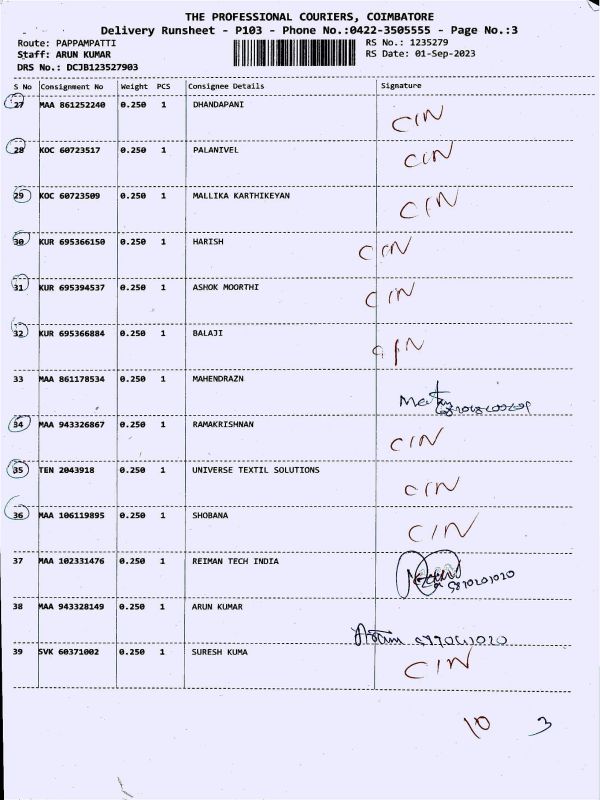 THE PROFESSIONAL COURIERS, COIMBATORE
Delivery Runsheet - P103 - Phone No.:0422-3505555 - Page No.:3
Route: PAPPAMPATTI RS No.: 1235279
Staff: ARUN KUMAR RS Date: 01-Sep-2023
DRS No.: DCJB123527903
S No Consignment No Weight PCS Consignee Details Signature
27 MAA 861252240 0.250 1 DHANDAPANI CIN
28 KOC 60723517 0.250 1 PALANIVEL CIN
29 KOC 60723509 0.250 1 MALLIKA KARTHIKEYAN CIN
30 KUR 695366150 0.250 1 HARISH CIN
31 KUR 695394537 0.250 1 ASHOK MOORTHI CIN
32 KUR 695366884 0.250 1 BALAJI CIN
33 MAA 861178534 0.250 1 MAHENDRAZN
34 MAA 943326867 0.250 1 RAMAKRISHNAN CIN
35 TEN 2043918 0.250 1 UNIVERSE TEXTIL SOLUTIONS CIN
36 MAA 106119895 0.250 1 SHOBANA CIN
37 MAA 102331476 0.250 1 REIMAN TECH INDIA
38 MAA 943328149 0.250 1 ARUN KUMAR
39 SVK 60371002 0.250 1 SURESH KUMA CIN
10 3